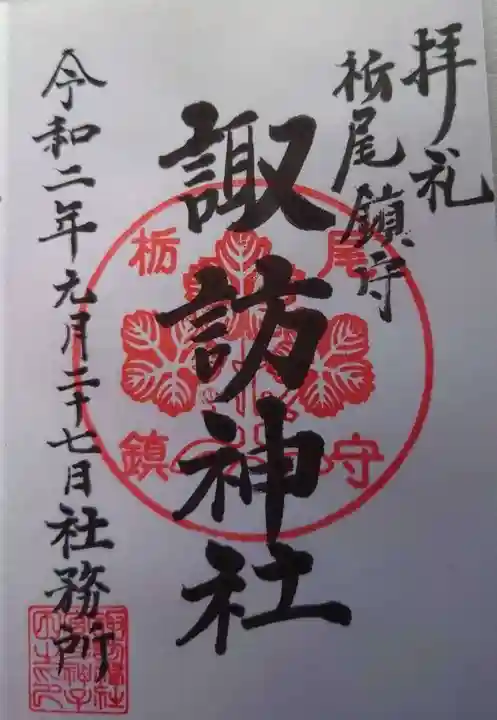 拝礼
栃尾鎮守
諏訪神社
栃尾
鎮守
令和二年元月二十七日社務所